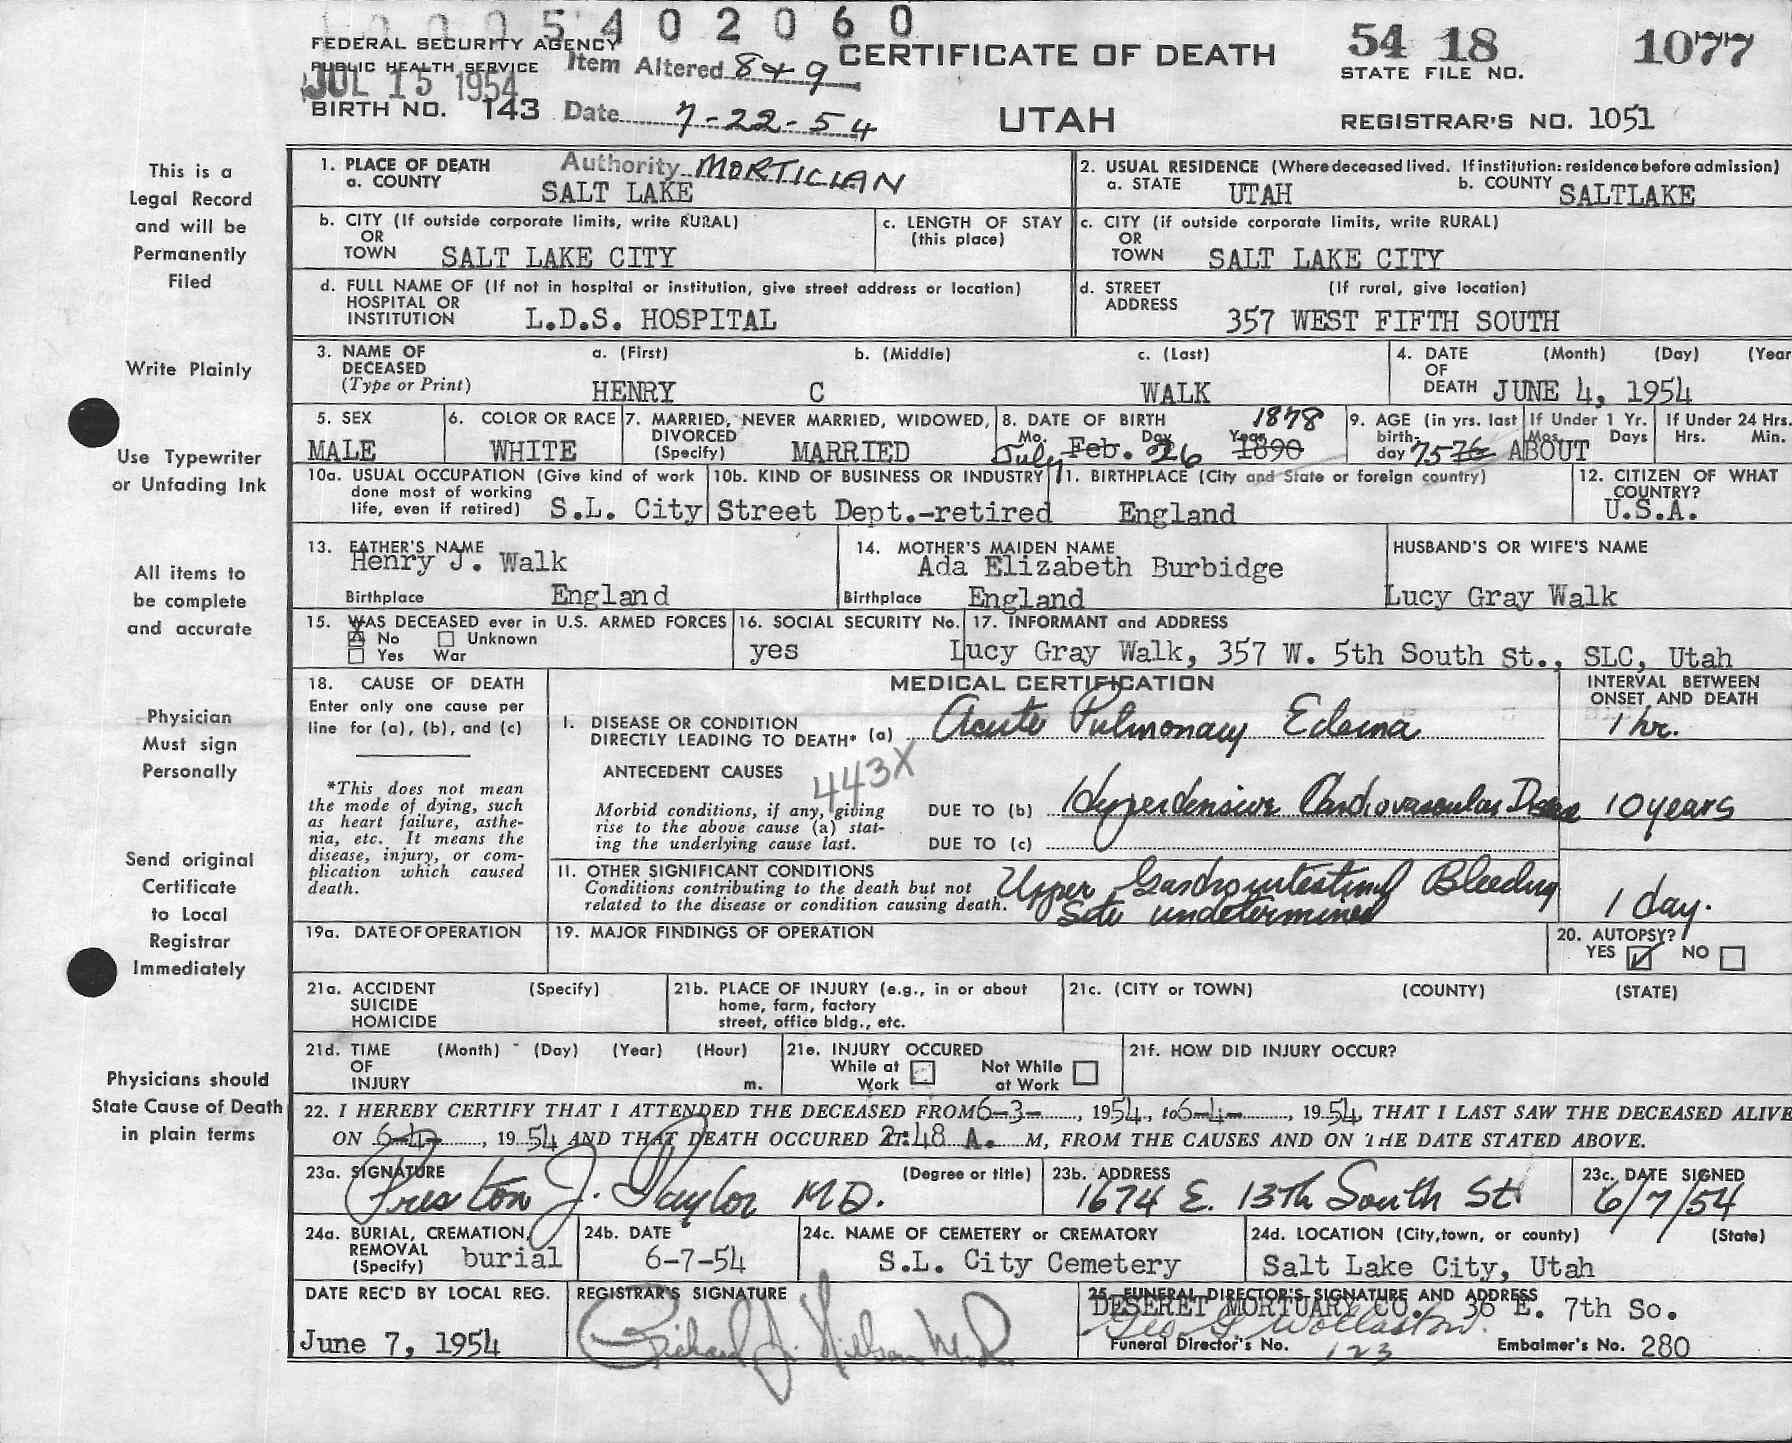 5 4 0 2 0 6 0
FEDERAL SECURITY AGENCY
PUBLIC HEALTH SERVICE
JUL 15 1954
BIRTH NO. 143
Item Altered 8+9
Date 7-22-54
Authority MORTICIAN
CERTIFICATE OF DEATH
UTAH
54 18 1077
STATE FILE NO.
REGISTRAR'S NO. 1051
This is a
Legal Record
and will be
Permanently
Filed
Write Plainly
Use Typewriter
or Unfading Ink
All items to
be complete
and accurate
Physician
Must sign
Personally
Send original
Certificate
to Local
Registrar
Immediately
Physicians should
State Cause of Death
in plain terms
1. PLACE OF DEATH
a. COUNTY SALT LAKE
2. USUAL RESIDENCE (Where deceased lived. If institution: residence before admission)
a. STATE UTAH b. COUNTY SALTLAKE
b. CITY (If outside corporate limits, write RURAL)
OR
TOWN SALT LAKE CITY
c. LENGTH OF STAY
(this place)
c. CITY (if outside corporate limits, write RURAL)
OR
TOWN SALT LAKE CITY
d. FULL NAME OF (If not in hospital or institution, give street address or location)
HOSPITAL OR
INSTITUTION L.D.S. HOSPITAL
d. STREET (If rural, give location)
ADDRESS
357 WEST FIFTH SOUTH
3. NAME OF a. (First) b. (Middle) c. (Last)
DECEASED
(Type or Print) HENRY C WALK
4. DATE (Month) (Day) (Year
OF
DEATH JUNE 4, 1954
5. SEX
MALE
6. COLOR OR RACE
WHITE
7. MARRIED, NEVER MARRIED, WIDOWED,
DIVORCED
(Specify) MARRIED
8. DATE OF BIRTH 1878
Mo. Day Year
July Feb. 26 1890
9. AGE (in yrs. last
birth-
day 75 76 ABOUT
If Under 1 Yr.
Mos. Days
If Under 24 Hrs.
Hrs. Min.
10a. USUAL OCCUPATION (Give kind of work
done most of working
life, even if retired) S.L. City
10b. KIND OF BUSINESS OR INDUSTRY
Street Dept.-retired
11. BIRTHPLACE (City and State or foreign country)
England
12. CITIZEN OF WHAT
COUNTRY?
U.S.A.
13. FATHER'S NAME
Henry J. Walk
Birthplace England
14. MOTHER'S MAIDEN NAME
Ada Elizabeth Burbidge
Birthplace England
HUSBAND'S OR WIFE'S NAME
Lucy Gray Walk
15. WAS DECEASED ever in U.S. ARMED FORCES
X No Unknown
Yes War
16. SOCIAL SECURITY No.
yes
17. INFORMANT and ADDRESS
Lucy Gray Walk, 357 W. 5th South St., SLC, Utah
18. CAUSE OF DEATH
Enter only one cause per
line for (a), (b), and (c)
*This does not mean
the mode of dying, such
as heart failure, asthe-
nia, etc. It means the
disease, injury, or com-
plication which caused
death.
MEDICAL CERTIFICATION
INTERVAL BETWEEN
ONSET AND DEATH
I. DISEASE OR CONDITION
DIRECTLY LEADING TO DEATH* (a) Acute Pulmonary Edema 1 hr.
ANTECEDENT CAUSES
443X
Morbid conditions, if any, giving
rise to the above cause (a) stat-
ing the underlying cause last.
DUE TO (b) Hypertensive Cardiovascular Disease 10 years
DUE TO (c)
II. OTHER SIGNIFICANT CONDITIONS
Conditions contributing to the death but not
related to the disease or condition causing death.
Upper Gastrointestinal Bleeding
Site undetermined 1 day.
19a. DATE OF OPERATION
19. MAJOR FINDINGS OF OPERATION
20. AUTOPSY?
YES ✓ NO
21a. ACCIDENT (Specify)
SUICIDE
HOMICIDE
21b. PLACE OF INJURY (e.g., in or about
home, farm, factory
street, office bldg., etc.
21c. (CITY or TOWN) (COUNTY) (STATE)
21d. TIME (Month) (Day) (Year) (Hour)
OF
INJURY m.
21e. INJURY OCCURED
While at Work Not While at Work
21f. HOW DID INJURY OCCUR?
22. I HEREBY CERTIFY THAT I ATTENDED THE DECEASED FROM 6-3-, 1954, to 6-4-, 1954, THAT I LAST SAW THE DECEASED ALIVE
ON 6-4-, 1954 AND THAT DEATH OCCURED AT 2:48 A. M, FROM THE CAUSES AND ON THE DATE STATED ABOVE.
23a. SIGNATURE (Degree or title)
Preston J. Taylor MD.
23b. ADDRESS
1674 E. 13th South St
23c. DATE SIGNED
6/7/54
24a. BURIAL, CREMATION,
REMOVAL
(Specify) burial
24b. DATE
6-7-54
24c. NAME OF CEMETERY OR CREMATORY
S.L. City Cemetery
24d. LOCATION (City, town, or county) (State)
Salt Lake City, Utah
DATE REC'D BY LOCAL REG.
June 7, 1954
REGISTRAR'S SIGNATURE
Richard J. Nielson M.D.
25. FUNERAL DIRECTOR'S SIGNATURE AND ADDRESS
DESERET MORTUARY CO. 36 E. 7th So.
Geo G Wollaston
Funeral Director's No. 123 Embalmer's No. 280